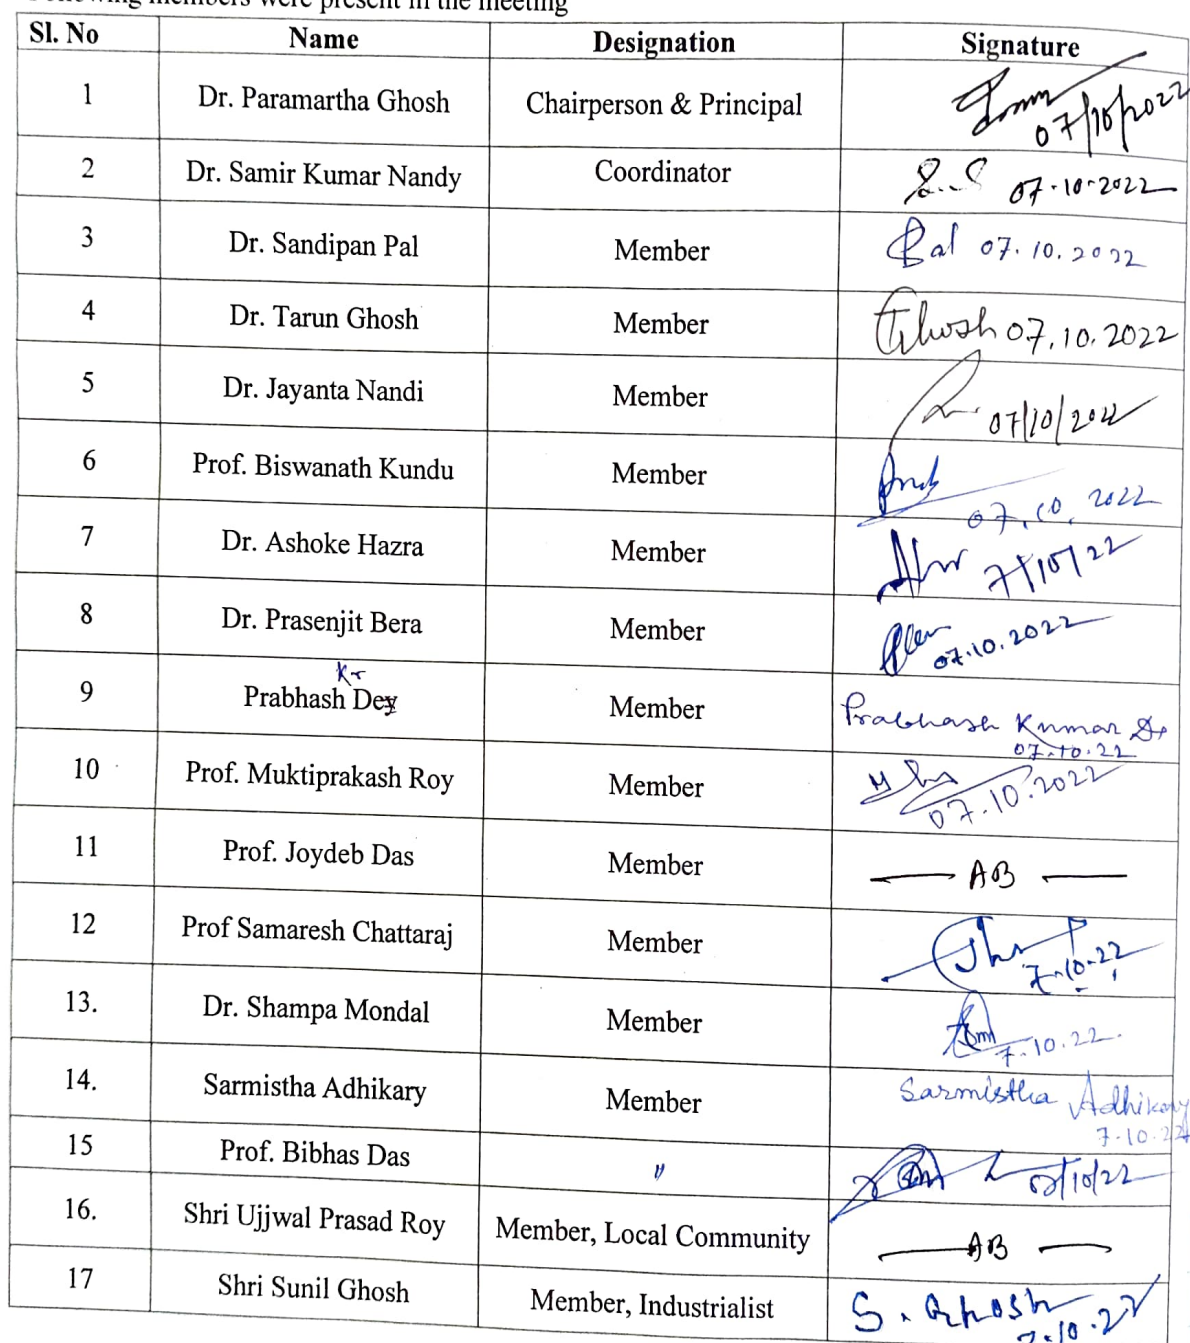 Following members were present in the meeting
Sl. No Name Designation Signature
1 Dr. Paramartha Ghosh Chairperson & Principal
07/10/2022
2 Dr. Samir Kumar Nandy Coordinator 07.10.2022
3 Dr. Sandipan Pal Member Pal 07.10.2022
4 Dr. Tarun Ghosh Member Ghosh 07.10.2022
5 Dr. Jayanta Nandi Member 07/10/2022
6 Prof. Biswanath Kundu Member
07.10.2022
7 Dr. Ashoke Hazra Member 7/10/22
8 Dr. Prasenjit Bera Member
07.10.2022
Kr
9 Prabhash Dey Member Prabhash Kumar De
07.10.22
10 Prof. Muktiprakash Roy Member
07.10.2022
11 Prof. Joydeb Das Member — AB —
12 Prof Samaresh Chattaraj Member
7.10.22
13. Dr. Shampa Mondal Member
7.10.22
14. Sarmistha Adhikary Member Sarmistha Adhikary
7.10.22
15 Prof. Bibhas Das " 07/10/22
16. Shri Ujjwal Prasad Roy Member, Local Community — AB —
17 Shri Sunil Ghosh Member, Industrialist S. Ghosh
7.10.22